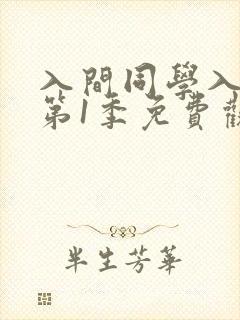 入間同學入
第1季免費
半生芳華